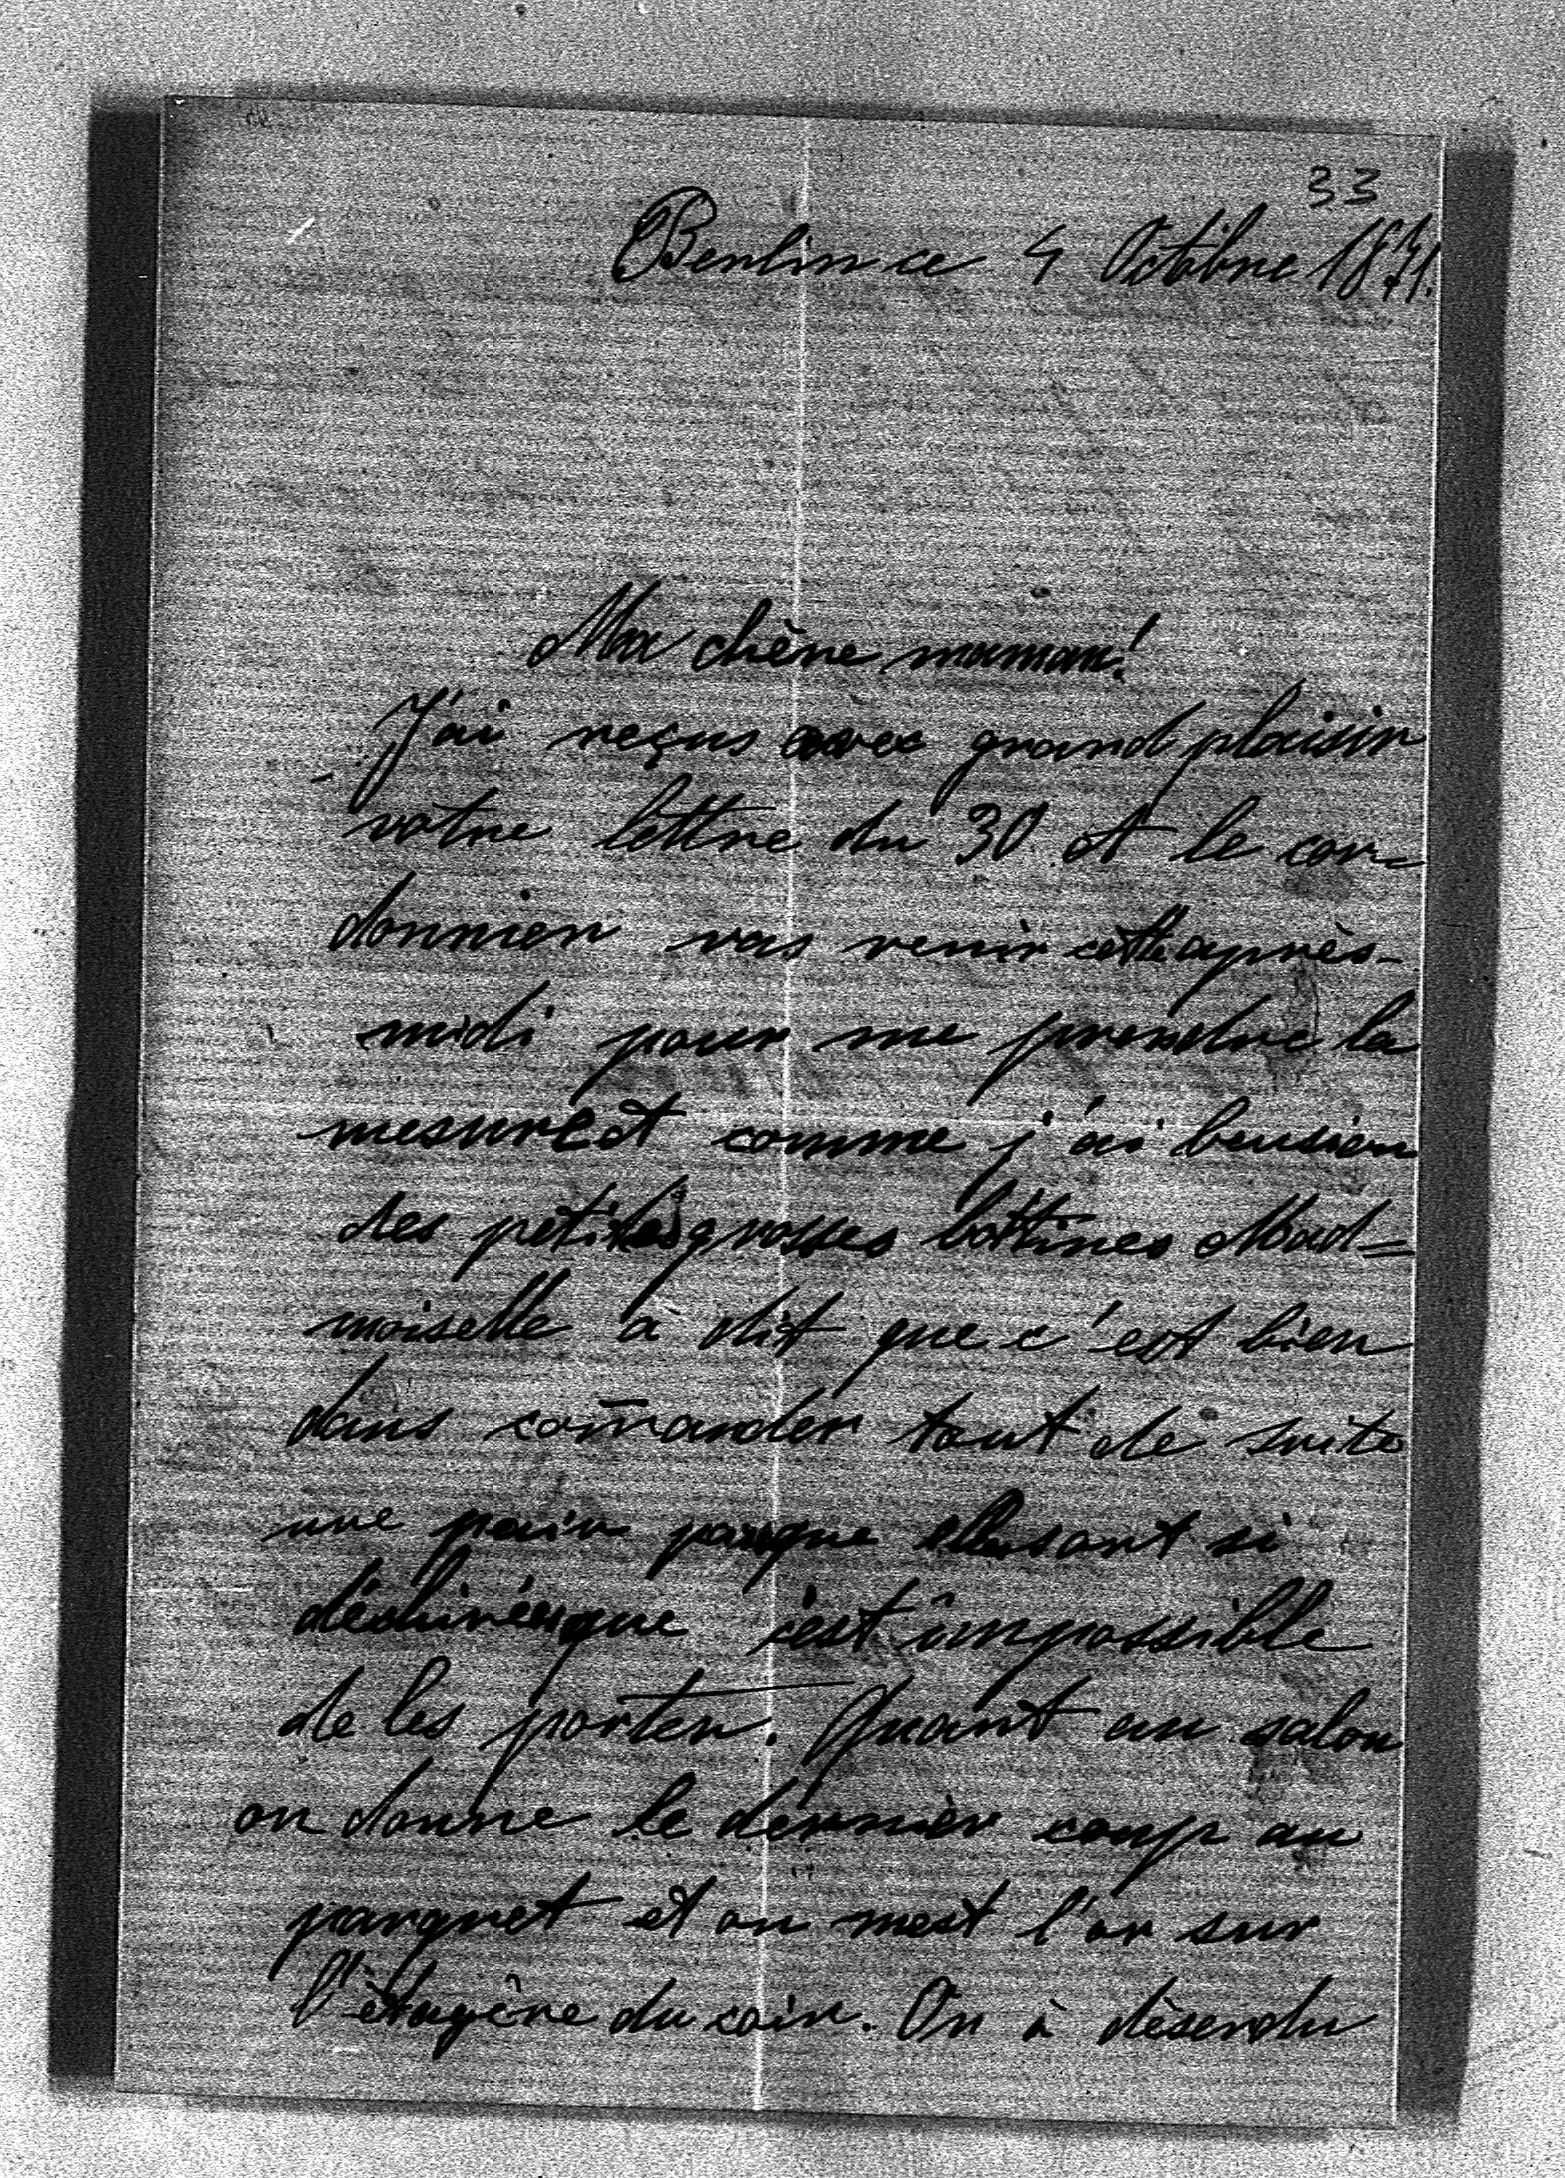 33
Berlin ce 4 Octobre 1871.
Ma chère maman!
J'ai reçus avec grand plaisir
votre lettre du 30 et le cor=
donnier vas venir cette après-
midi pour me prendre la
mesure et comme j'ai
des petites grosses bottines Mad=
moiselle à dit que c'est bien
dans comander tout de suite
une pair parque elle sont si
déchirées que c'est impossible
de les porter. Quant au salon
on donne le dernièr coup au
parquet et on mest l'or sur
l'étagère du coin. On à déscendu